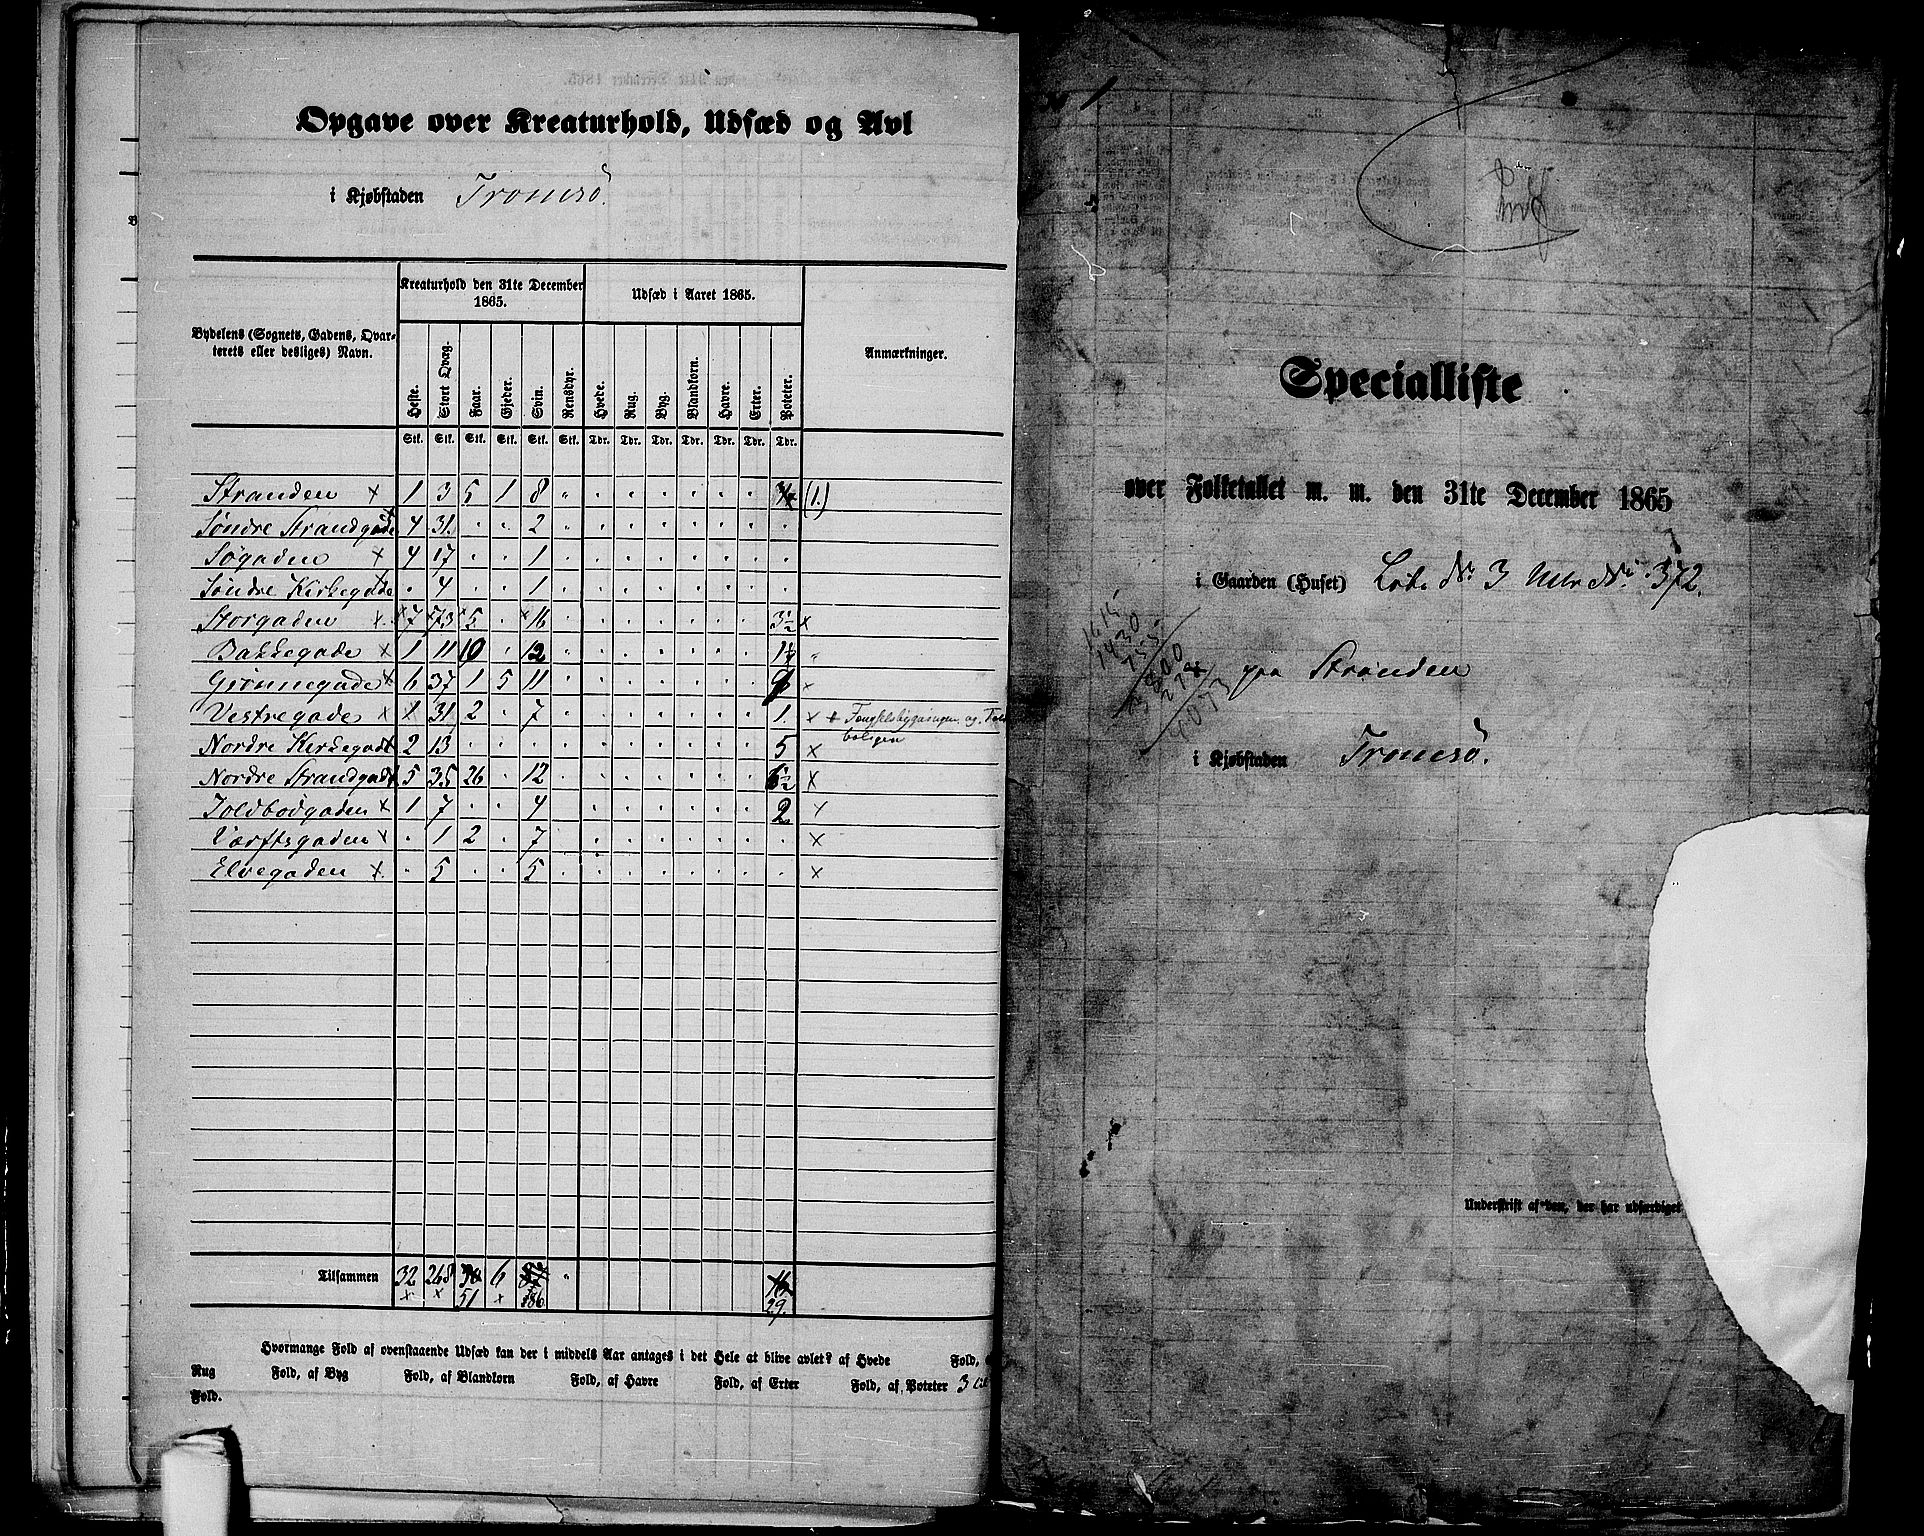 Opgave over Kreaturhold, Udsæd og Avl
i Kjøbstaden Tromsö.
Bydelens (Sognets, Gadens, Qvarterets eller desliges) Navn.
Kreaturhold den 31te December 1865.
Udsæd i Aaret 1865.
Anmærkninger.
Heste. Stort Qvæg. Faar. Gjeder. Svin. Rensdyr. Hvede. Rug. Byg. Blandkorn. Havre. Erter. Poteter.
Stk. Stk. Stk. Stk. Stk. Stk. Tdr. Tdr. Tdr. Tdr. Tdr. Tdr. Tdr.
Stranden x 1 3 5 1 8 (1.)
Söndre Strandgade 4 31. 2
Søgaden x 4 17 1
Söndre Kirkegade 4 1
Storgaden x 7 73 5 16 3½ x
Bakkegade x 1 11 10 12
Grønnegade x 6 37 1 5 11
Vestregade x 1 31 2 7 1. x + Fængselsbygningen og
boligen
Nordre Kirkegade 2 13 5 x
Nordre Strandgade 5 35 26 12 6½ x
Toldbodgaden x 1 7 4 2 x
Værftsgaden x 1 2 7 x
Elvegaden x 5 5 x
Tilsammen 32 268 6
51 86 29.
Hvormange Fold af ovenstaaende Udsæd kan der i middels Aar antages i det Hele at blive avlet? af Hvede Fold,
Rug Fold, af Byg Fold, af Blandkorn Fold, af Havre Fold, af Erter Fold, af Poteter 3
Fold.
1
Specialliste
over Folketallet m. m. den 31te December 1865
i Gaarden (Huset) Lit. Nr 3 Mtr Nr 372.
paa Stranden
i Kjøbstaden Tromsö.
1430
4073
Underskrift af den, der har udfærdiget